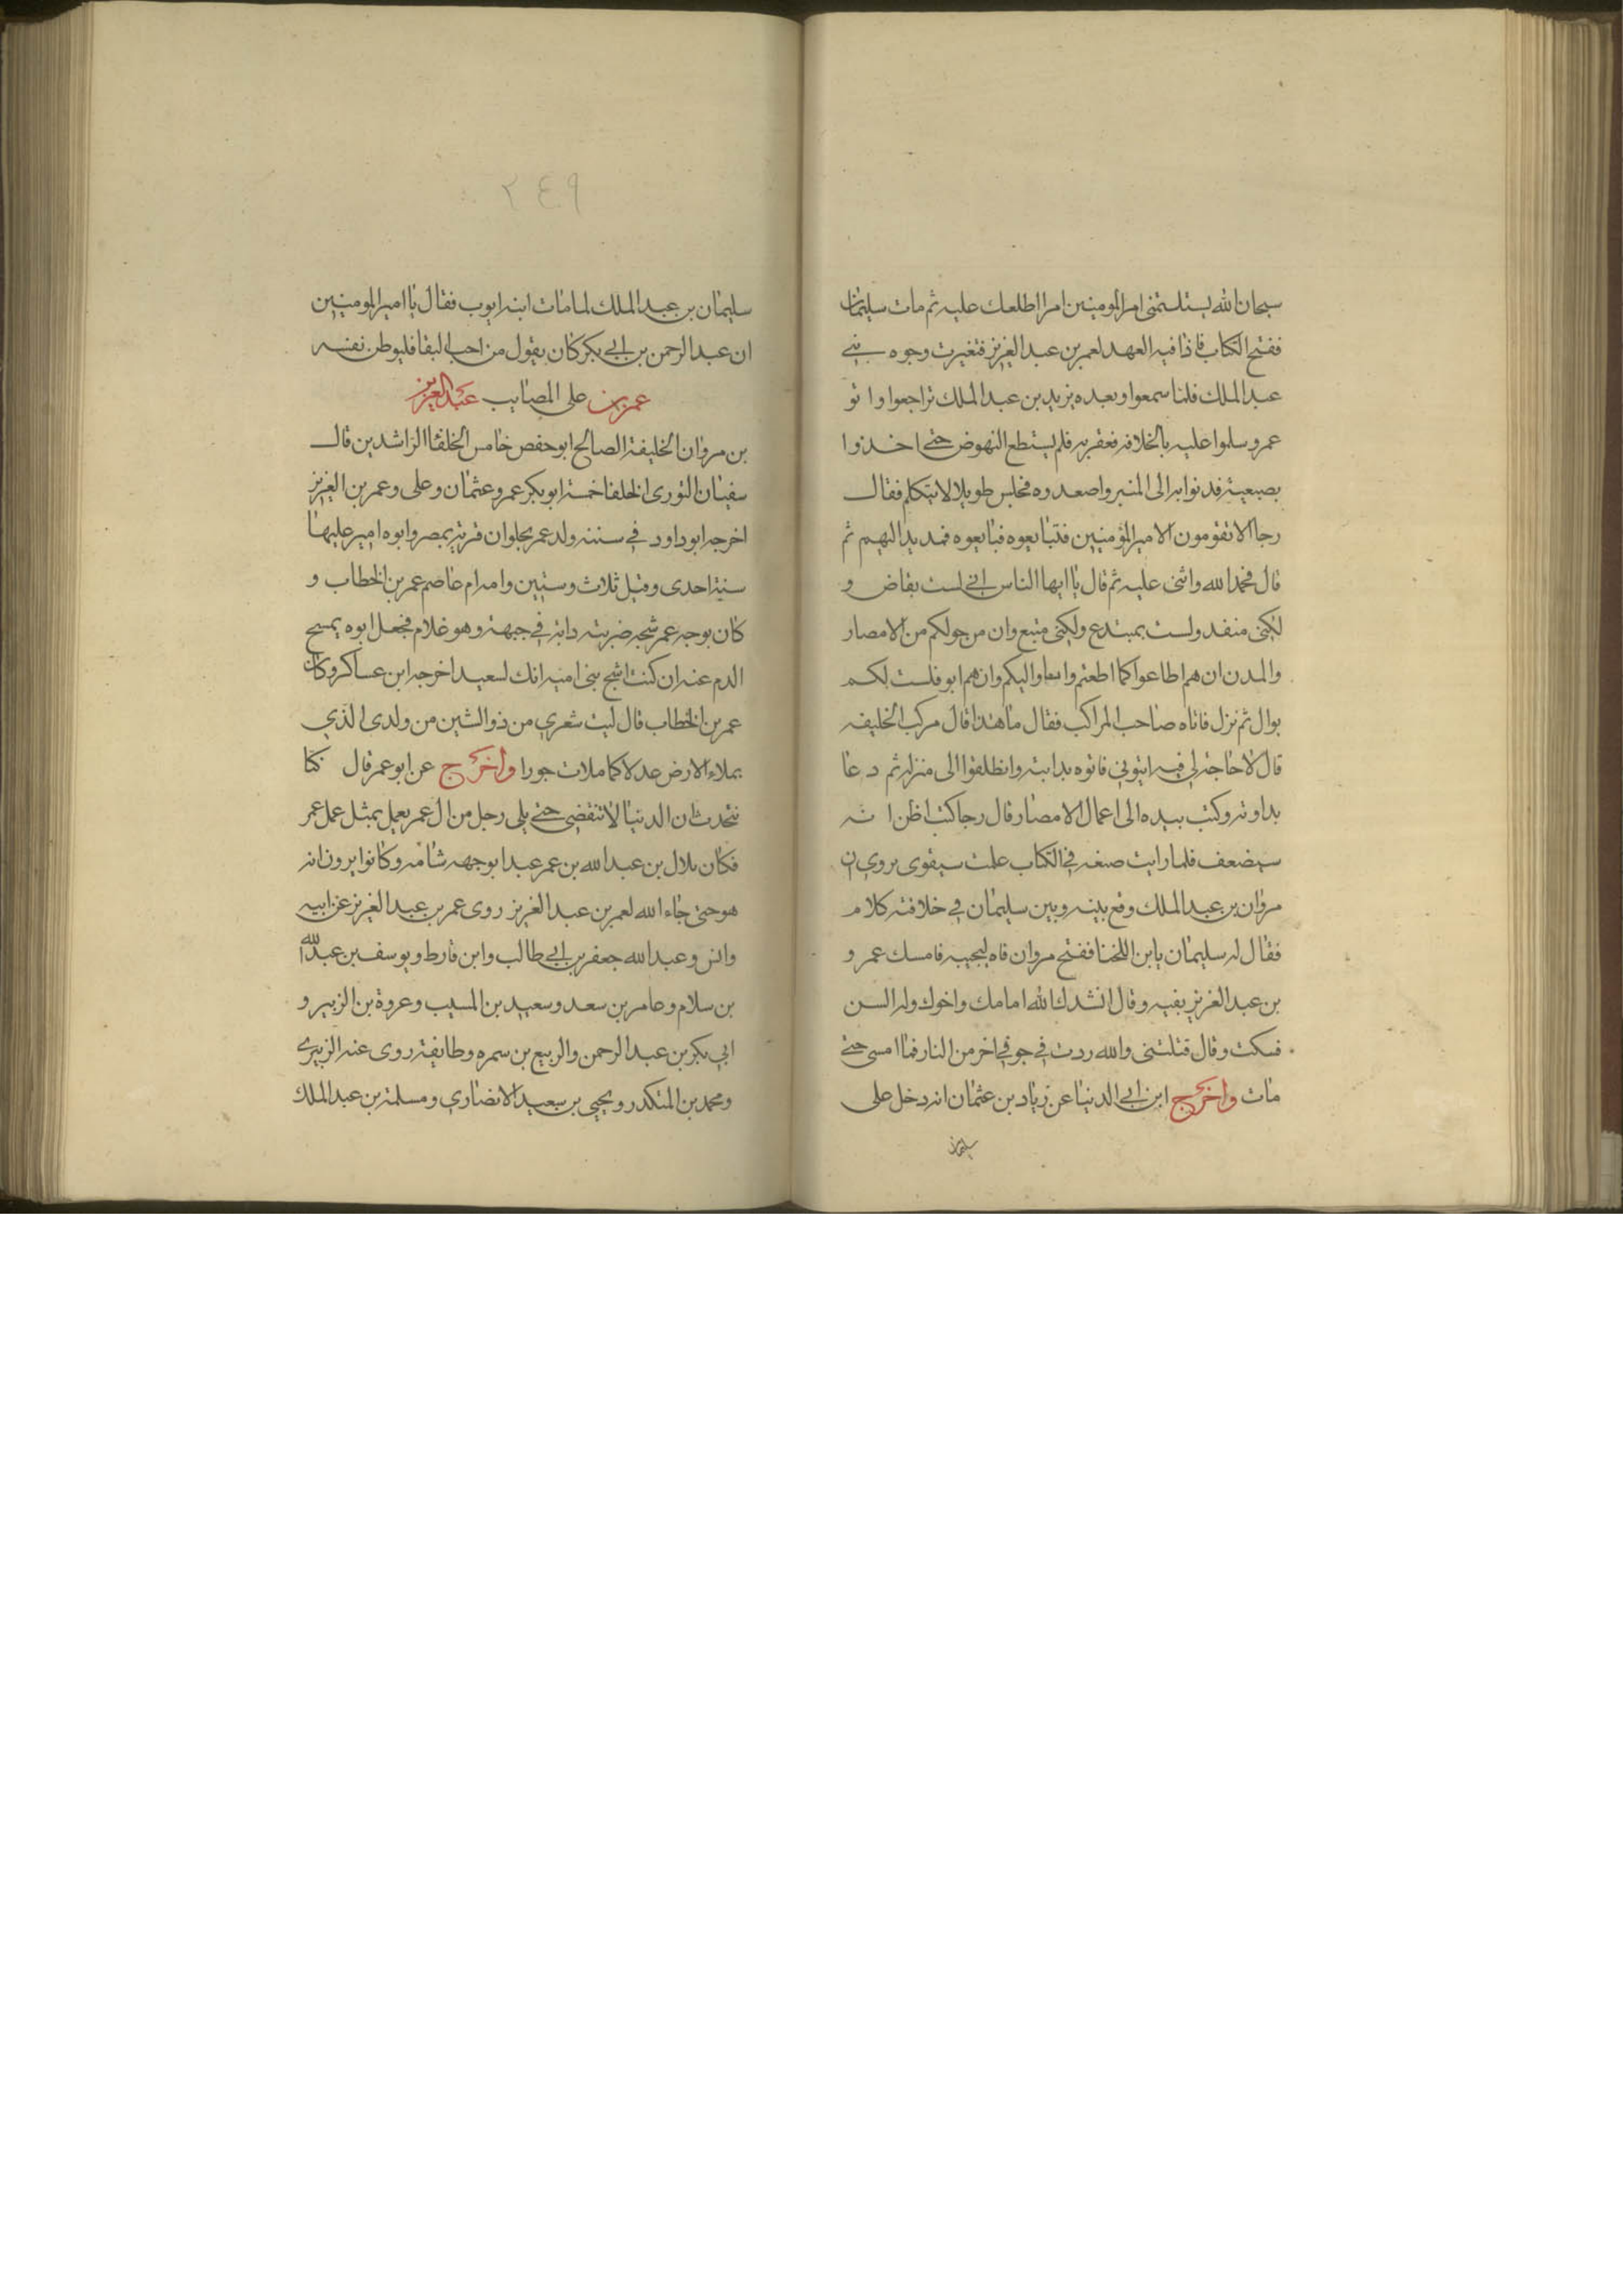 سبحان الله يستلتمنى امير المومنين امرا اطلعك عليه ثم مات سليمان
ففتح الكتاب فاذا فيه العهد لعمر بن عبد العزيز فتغيرت وجوه بني
عبد الملك فلما سمعوا وبعده يزيد بن عبد الملك تراجعوا واتو
عمر وسلموا عليه بالخلافه فعقر به فلم يستطع النهوض حتى اخذوا
بصبعيه فدنوا به الى المنبر واصعدوه فجلس طويلا لا يتكلم فقال
رجا الا تقومون الا مير المؤمنين فتبايعوه فبايعوه فمد يد اليهم ثم
قال فحمد الله واثنى عليه ثم قال يا ايها الناس اني لست بقاض و
لكنى منفد ولست بمبتدع ولكنى متبع وان من حولكم من الامصار
والمدن ان هم اطاعوا كما اطعتم وانا واليكم وان هم ابو فلست لكم
بوال ثم نزل فاتاه صاحب المراكب فقال ما هذا قال مركب الخليفه
قال لا حاجة لي فيه ايتوني فاتوه بدابته وانطلقوا الى منزله ثم دعا
بداوته وكتب بيده الى اعمال الامصار قال رجا كنت اظن انه
سيضعف فلما رايت صنعه في الكتاب علمت سيقوى يروي ان
مروان بن عبد الملك وقع بينه وبين سليمان في خلافته كلام
فقال له سليمان يا بن اللخنا ففتح مروان فاه ليجيبه فامسك عمر و
بن عبد العزيز بفيه وقال انشدك الله امامك واخوك وله السن
فسكت وقال قتلتنى والله ردت في جوفي اخر من النار فما امسى حتى
مات واخرج ابن ابي الدنيا عن زياد بن عثمان انه دخل على
سليمان
٢٤٩
سليمان بن عبد الملك لما مات ابنه ايوب فقال يا امير المومنين
ان عبد الرحمن بن ابي بكر كان يقول من احب البقا فليوطن نفسه
عمر بن على المصايب عبد العزيز
بن مروان الخليفة الصالح ابو حفص خامس الخلفا الراشدين قال
سفيان الثورى الخلفا خمسة ابو بكر عمر وعثمان وعلى وعمر بن العزيز
اخرجه ابو داود في سننه ولد عمر بحلوان قرية بمصر وابوه امير عليها
سنة احدى وقيل ثلاث وستين وامه ام عاصم عمر بن الخطاب و
كان بوجه عمر شجه ضربته دابة في جبهته وهو غلام فجعل ابوه يمسح
الدم عنه ان كنت اشج بني اميه انك لسعيد اخرجه ابن عساكر وكان
عمر بن الخطاب قال ليت شعري من ذو الشين من ولدى الذي
يملاء الارض عدلا كما ملات جورا واخرج عن ابو عمر قال كنا
نتحدث ان الدنيا لا تنقضى حتى يلى رجل من ال عمر يعمل بمثل عمل عمر
فكان بلال بن عبد الله بن عمر عبدا بوجهه شامه وكانوا يرون انه
هو حتى جاء الله لعمر بن عبد العزيز روى عمر بن عبد العزيز عن ابيه
وانس وعبد الله جعفر بن ابي طالب وابن قارط ويوسف بن عبد الله
بن سلام وعامر بن سعد وسعيد بن المسيب وعروة بن الزبير و
ابي بكر بن عبد الرحمن والربيع بن سمره وطايفة روى عنه الزبيرى
ومحمد بن المنكدر ويحيى بن سعيد الانصاري ومسلمة بن عبد الملك